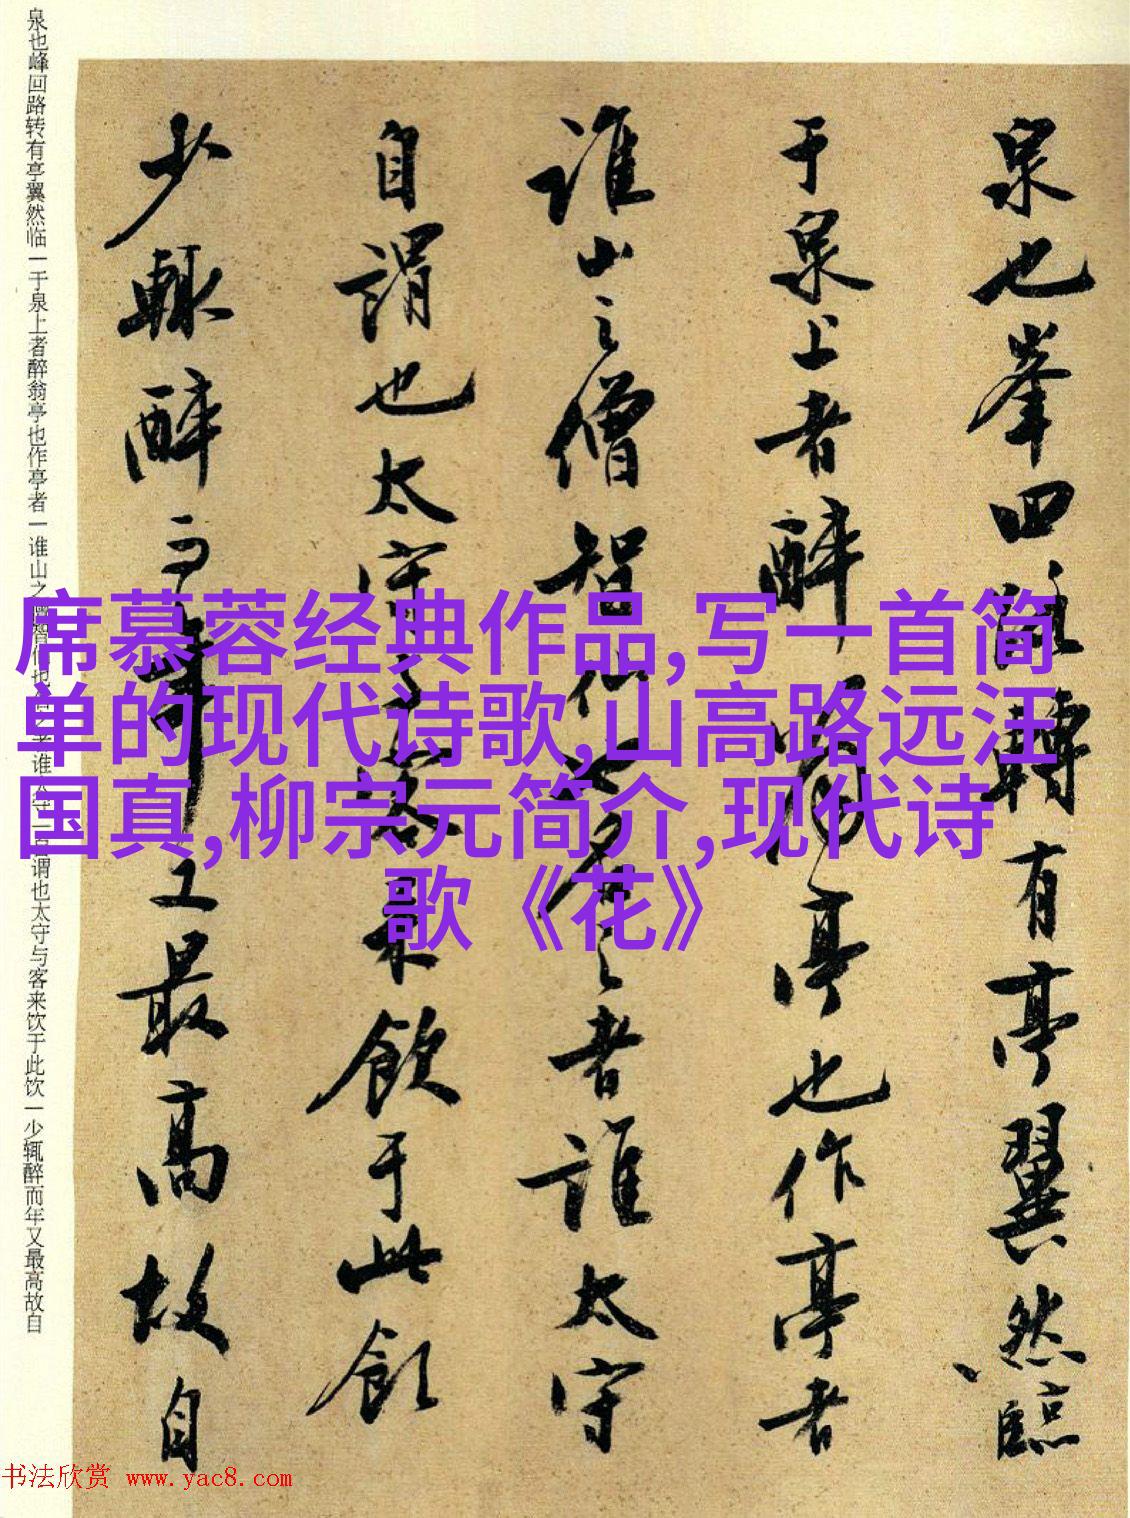 泉也峯回路轉有亭翼然臨
于泉上者醉翁亭也作亭者
誰山之僧智仙也名之者誰太守
自謂也太守与客来飲于此飲
少輒醉而年又最高故自
泉也峰回路转有亭翼然临一于泉上者醉翁亭也作亭者一谁山之僧智仙也名之者谁太守一自谓也太守与客来饮于此饮一少辄醉而年又最高故自
席慕蓉经典作品,写一首简
单的现代诗歌,山高路远汪
国真,柳宗元简介,现代诗
歌《花》
书法欣赏 www.yac8.com